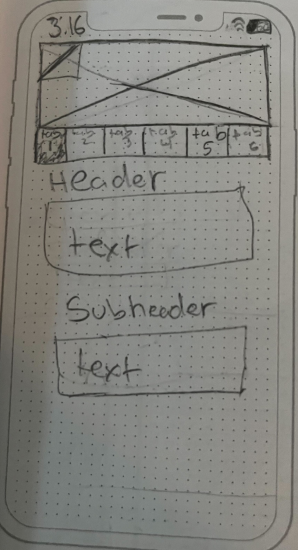 3.16
tab 1 tab 2 tab 3 tab 4 tab 5 tab 6
Header
text
Subheader
text